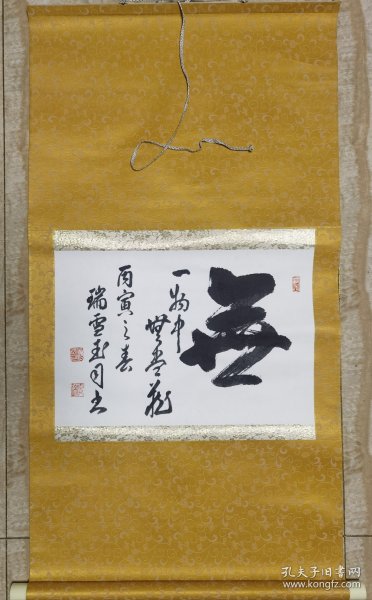 無
一物中
無尽蔵
丙寅之春
瑞雲玉司书
孔夫子旧书网
www.kongfz.com